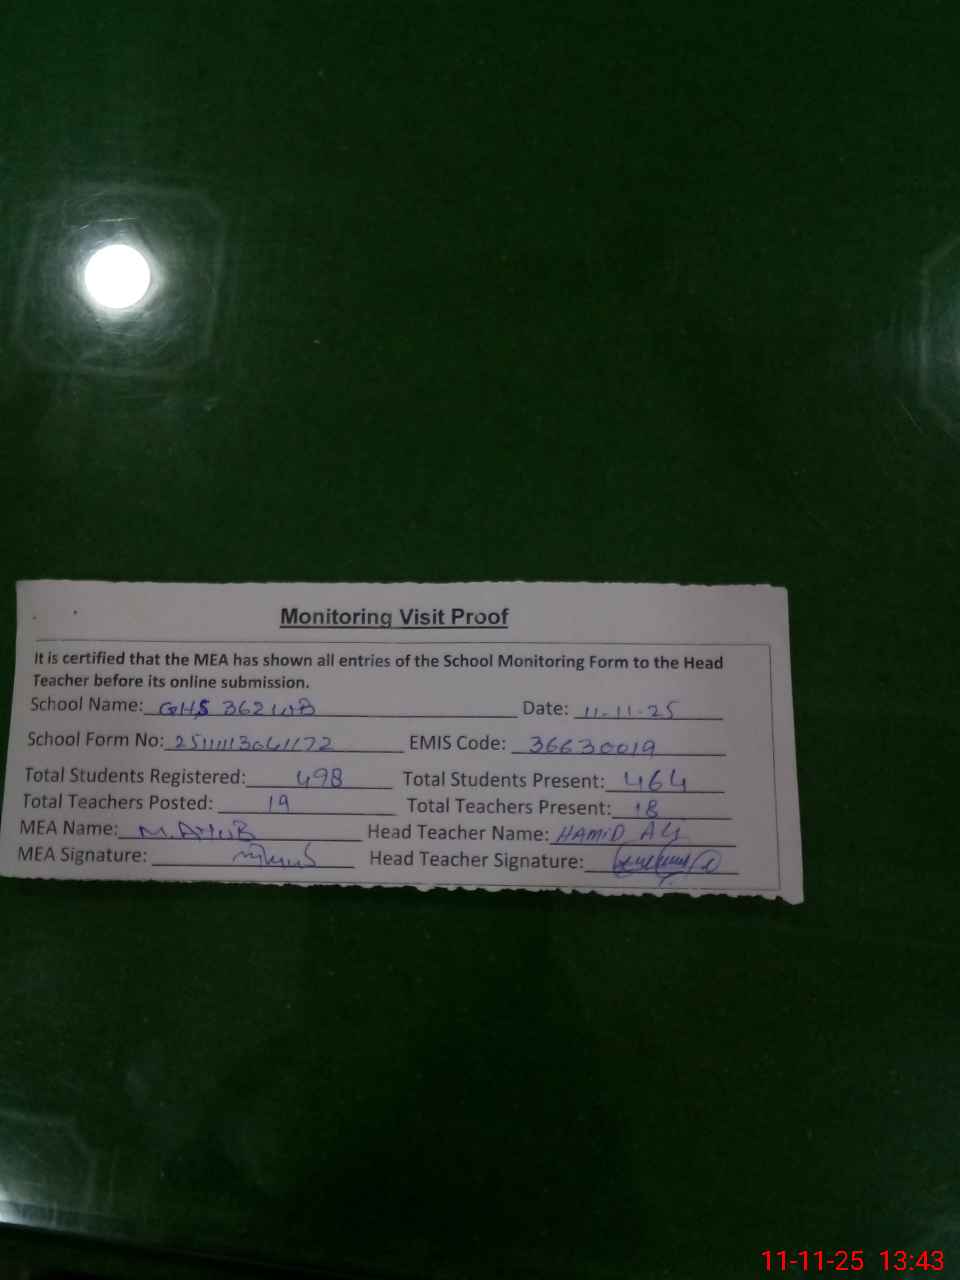 Monitoring Visit Proof
It is certified that the MEA has shown all entries of the School Monitoring Form to the Head
Teacher before its online submission.
School Name: GHS 362 WB Date: 11-11-25
School Form No: EMIS Code: 36630019
Total Students Registered: 498 Total Students Present: 464
Total Teachers Posted: 19 Total Teachers Present: 18
MEA Name: M. Head Teacher Name: HAMID ALI
MEA Signature: Head Teacher Signature:
11-11-25 13:43